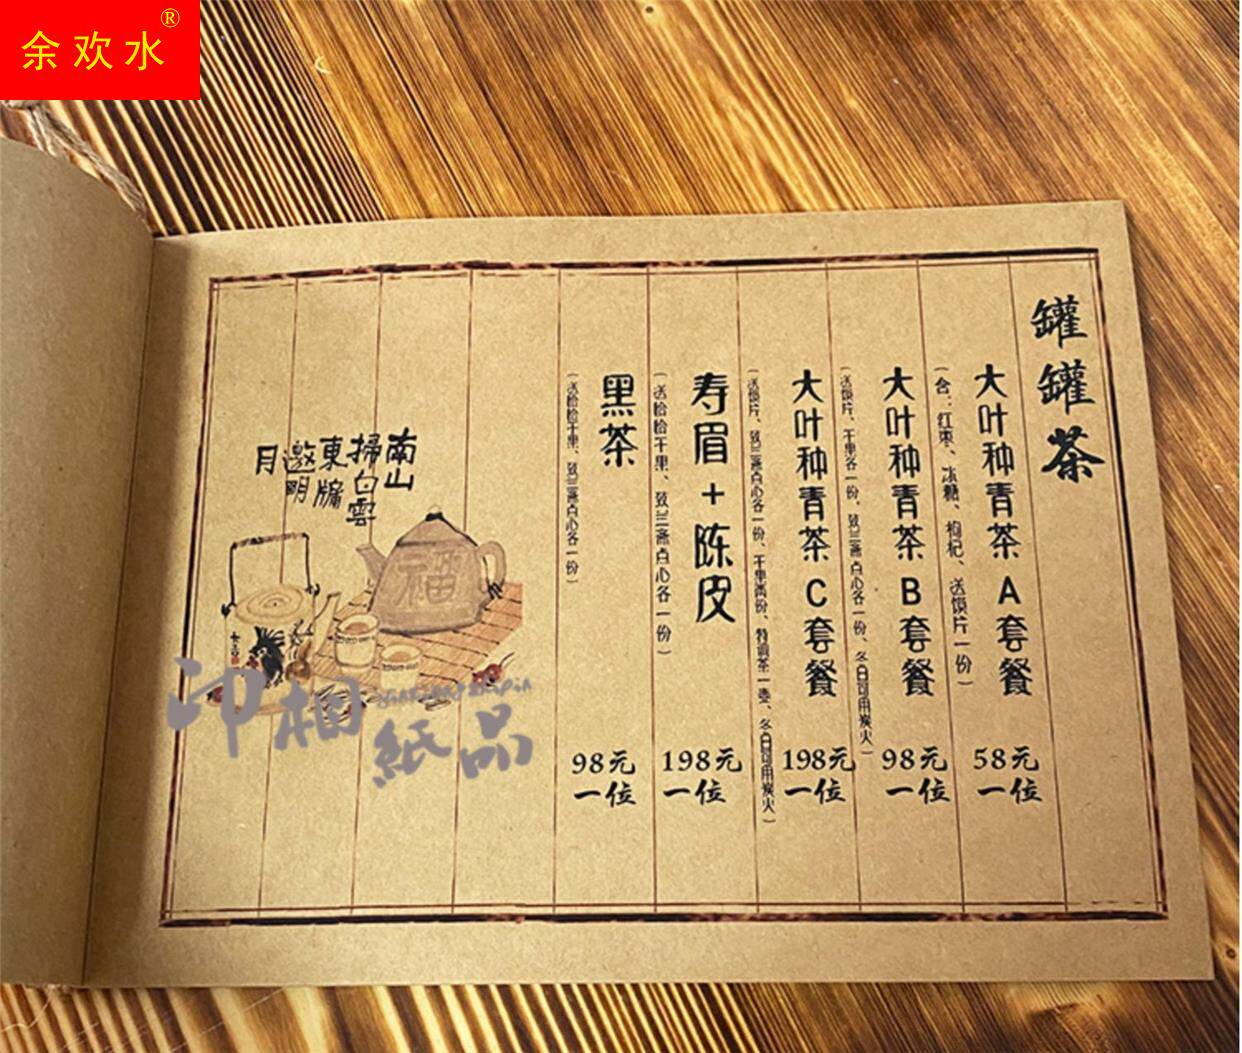 余欢水®
罐罐茶
大叶种青茶A套餐
58元
一位
(含：红枣、冰糖、枸杞、送馍片一份)
大叶种青茶B套餐
98元
一位
(送馍片、干果各一份，致兰斋点心各一份、冬日可用炭火)
大叶种青茶C套餐
198元
一位
(送馍片、致兰斋点心各一份、干果两份、特调茶一壶、冬日可用炭火)
寿眉+陈皮
198元
一位
(送恰恰干果、致兰斋点心各一份)
黑茶
98元
一位
(送恰恰干果、致兰斋点心各一份)
南山
掃白雲
東牖
邀明
月
福
印相
紙品